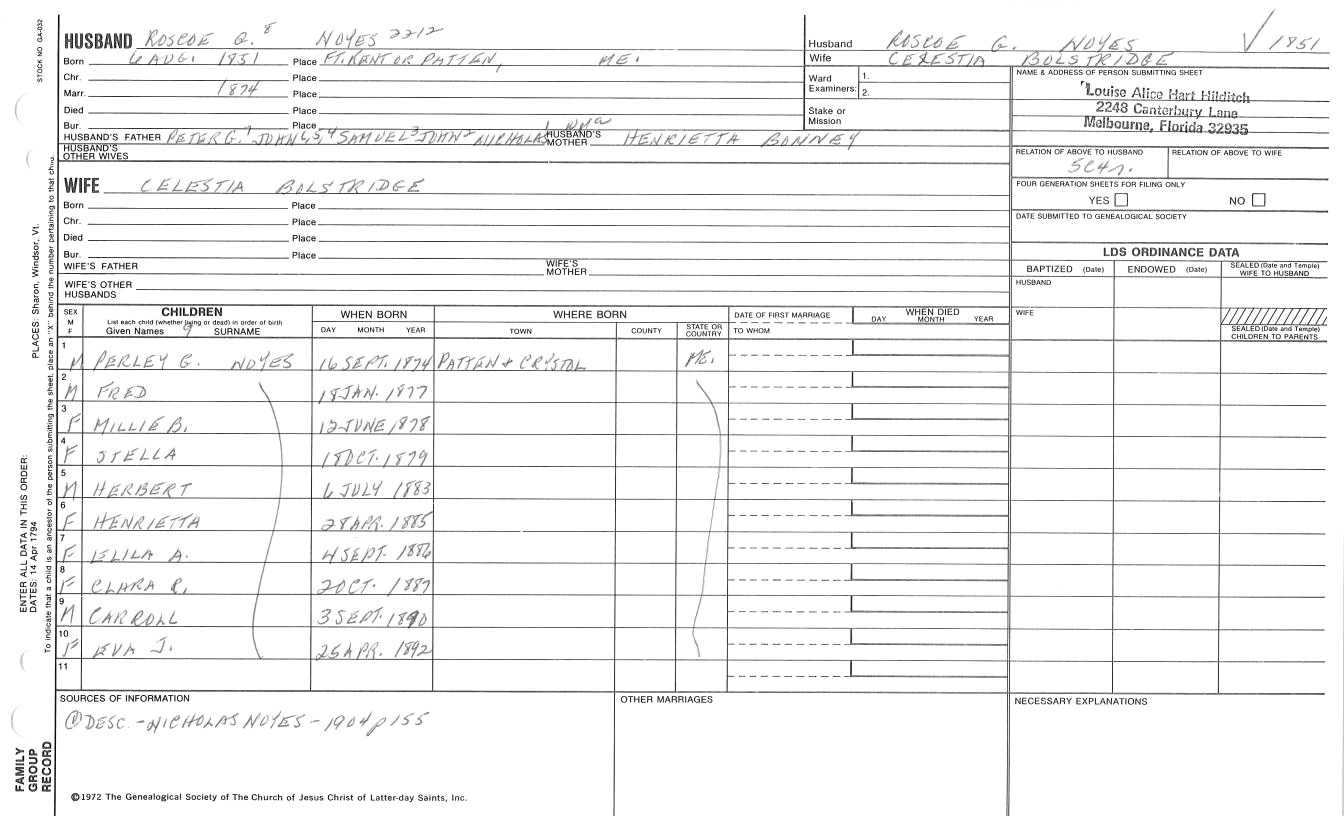 STOCK NO. GA-032
HUSBAND ROSCOE G. 8 NOYES 2212
Born 6 AUG. 1851 Place FT. KENT OR PATTEN, ME.
Chr. Place
Marr. 1874 Place
Died Place
Bur. Place
HUSBAND'S FATHER PETER G. 7 JOHN 6,5,4 SAMUEL 3 JOHN 2 NICHOLAS 1 HUSBAND'S MOTHER HENRIETTA BONNEY
HUSBAND'S OTHER WIVES
Husband ROSCOE G. NOYES √ 1851
Wife CELESTIA BOLSTRIDGE
Ward Examiners: 1.
2.
Stake or Mission
NAME & ADDRESS OF PERSON SUBMITTING SHEET
Louise Alice Hart Hilditch
2248 Canterbury Lane
Melbourne, Florida 32935
RELATION OF ABOVE TO HUSBAND RELATION OF ABOVE TO WIFE
5C4r.
FOUR GENERATION SHEETS FOR FILING ONLY
YES NO
DATE SUBMITTED TO GENEALOGICAL SOCIETY
WIFE CELESTIA BOLSTRIDGE
Born Place
Chr. Place
Died Place
Bur. Place
WIFE'S FATHER WIFE'S MOTHER
WIFE'S OTHER HUSBANDS
LDS ORDINANCE DATA
BAPTIZED (Date) ENDOWED (Date) SEALED (Date and Temple) WIFE TO HUSBAND
HUSBAND
WIFE
SEALED (Date and Temple) CHILDREN TO PARENTS
SEX M F
CHILDREN
List each child (whether living or dead) in order of birth
Given Names 9 SURNAME
WHEN BORN
DAY MONTH YEAR
WHERE BORN
TOWN COUNTY STATE OR COUNTRY
DATE OF FIRST MARRIAGE
TO WHOM
WHEN DIED
DAY MONTH YEAR
1 M PERLEY G. NOYES 16 SEPT. 1874 PATTEN & CRYSTAL ME.
2 M FRED 18 JAN. 1877
3 F MILLIE B. 12 JUNE 1878
4 F STELLA 18 OCT. 1879
5 M HERBERT 6 JULY 1883
6 F HENRIETTA 28 APR. 1885
7 F LILA A. 4 SEPT. 1886
8 F CLARA R. 2 OCT. 1887
9 M CARROLL 3 SEPT. 1890
10 F EVA J. 25 APR. 1892
11
SOURCES OF INFORMATION
① DESC. - NICHOLAS NOYES - 1904 p 155
OTHER MARRIAGES
NECESSARY EXPLANATIONS
©1972 The Genealogical Society of The Church of Jesus Christ of Latter-day Saints, Inc.
FAMILY GROUP RECORD
ENTER ALL DATA IN THIS ORDER:
DATES: 14 Apr 1794
PLACES: Sharon, Windsor, Vt.
To indicate that a child is an ancestor of the person submitting the sheet, place an "X" behind the number pertaining to that child.